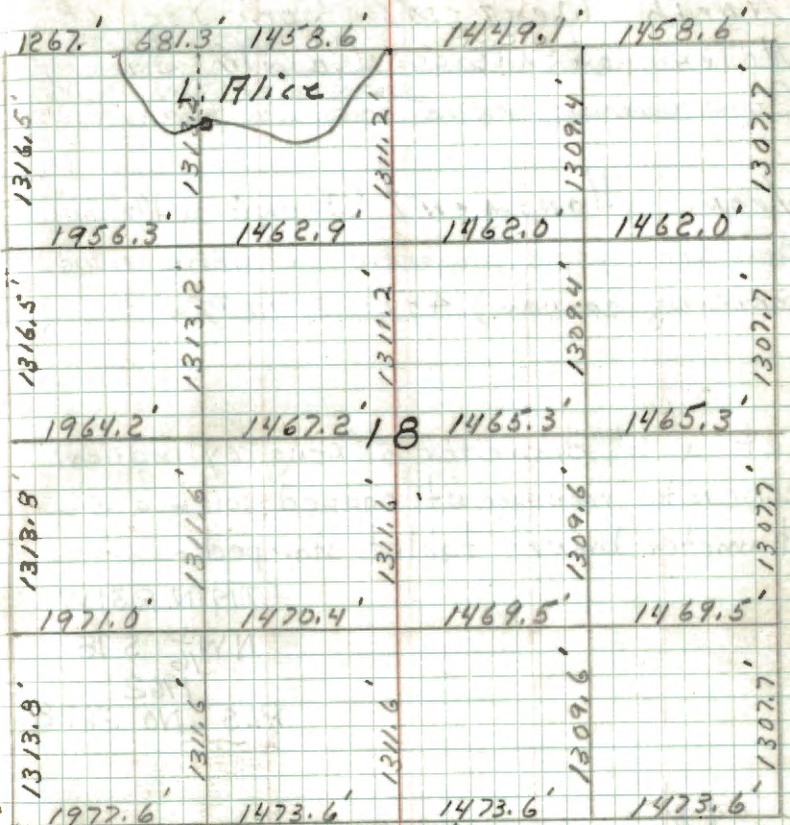 1267.' 681.3' 1458.6' 1449.1' 1458.6'
L. Alice
1316.5' 1311.2' 1309.4' 1307.7'
1956.3' 1462.9' 1462.0' 1462.0'
1316.5' 1313.2' 1311.2' 1309.4' 1307.7'
1964.2' 1467.2' 18 1465.3' 1465.3'
1311.6' 1311.6' 1309.6' 1307.7'
1971.0' 1470.4' 1469.5' 1469.5'
1313.8' 1311.6' 1311.6' 1309.6' 1307.7'
1977.6' 1473.6' 1473.6' 1473.6'